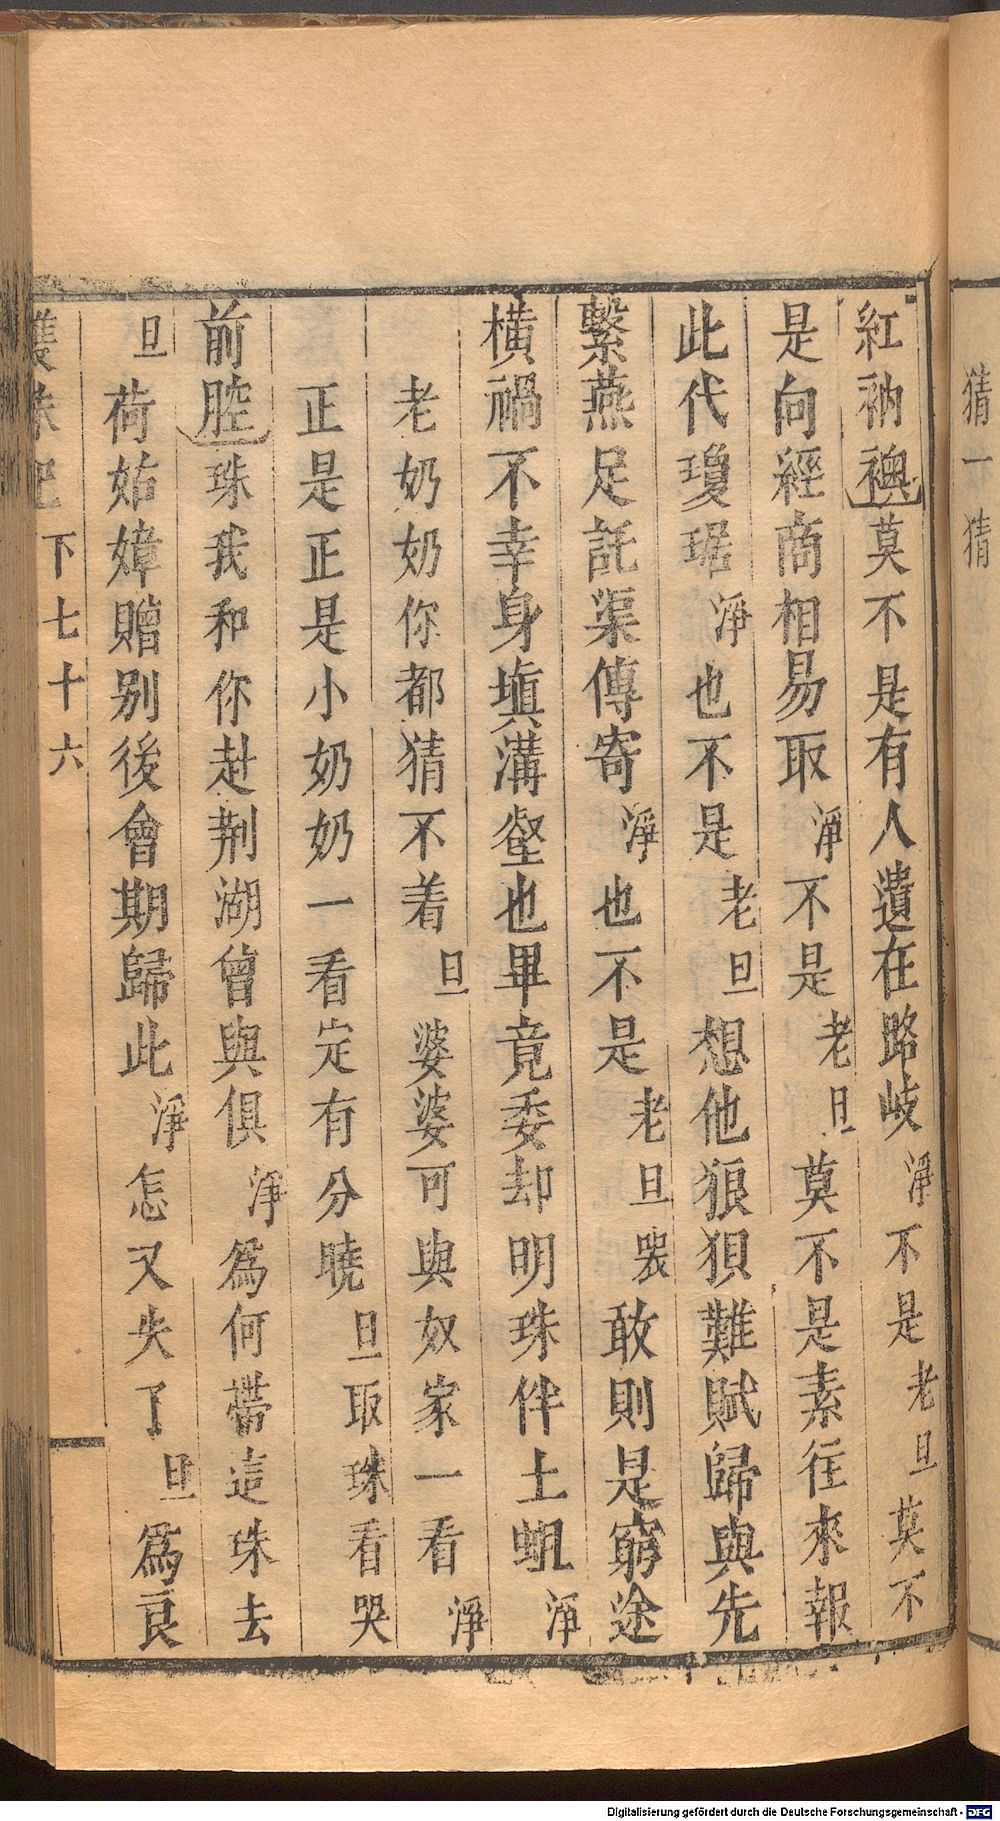 猜一猜
紅衲襖莫不是有人遺在路岐淨不是老旦莫不
是向經商相易取淨不是老旦莫不是素往來報
此代瓊琚淨也不是老旦想他狼狽難賦歸與先
繫燕足託渠傳寄淨也不是老旦哭敢則是窮途
橫禍不幸身塡溝壑也畢竟委却明珠伴土蛆淨
老奶奶你都猜不着旦婆婆可與奴家一看淨
正是正是小奶奶一看定有分曉旦取珠看哭
前腔珠我和你赴荆湖曾與俱淨爲何帶這珠去
旦荷姑嫜贈别後會期歸此淨怎又失了旦爲良
雙珠記 下七十六
Digitalisierung gefördert durch die Deutsche Forschungsgemeinschaft - DFG